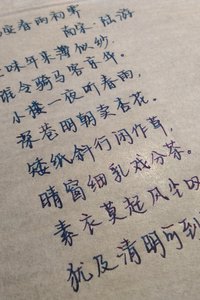 安春雨初霁
南宋·陆游
味年来薄似纱，
谁令骑马客京华。
小楼一夜听春雨，
深巷明朝卖杏花。
矮纸斜行闲作草，
晴窗细乳戏分茶。
素衣莫起风尘叹
犹及清明可到